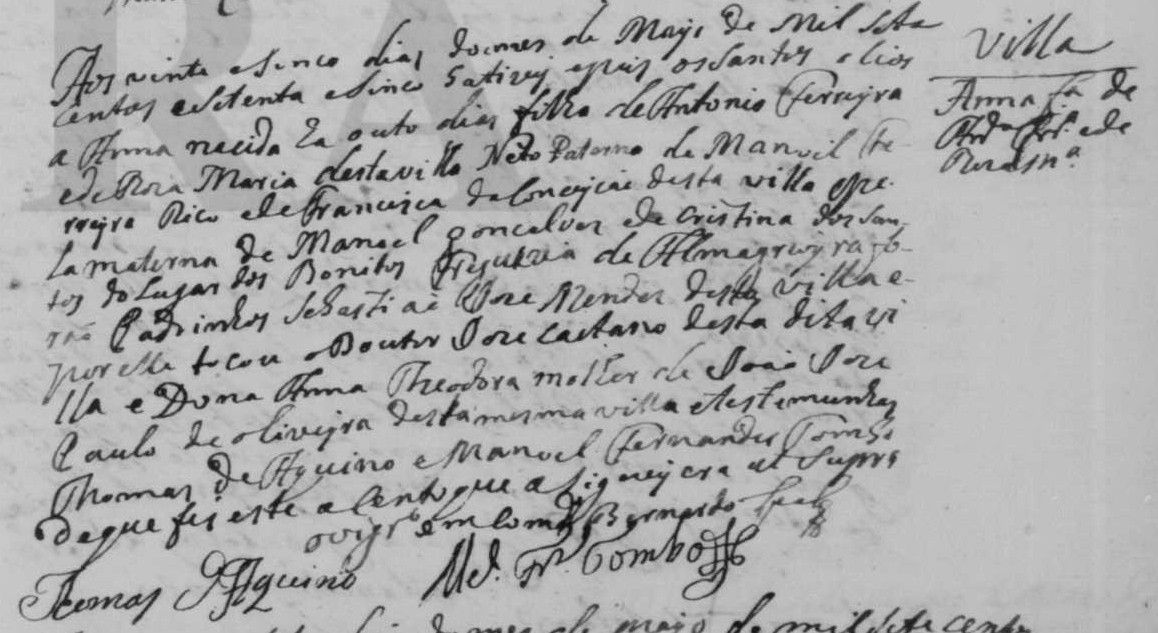 Villa
Anna fa. de
Anto. Ferra. e de
Rosa Ma.
Aos vinte e sinco dias do mes de Mayo de Mil Sete
centos e setenta e sinco Batizey e puis os Santos olios
a Anna nacida ha outo dias filha de Antonio Ferreyra
e de Roza Maria desta villa Neto Paterno de Manoel Fe-
rreyra Rico e de Francisca da Conceycaõ desta villa e pe-
la materna de Manoel gonçalves e de Cristina dos San-
tos do Lugar dos Bonitos Freguezia de Almagreyra fo-
raõ Padrinhos Sebastiaõ Joze Mendes desta villa e
por elle tocou o Doutor Joze Caetano desta dita vi
lla e Dona Anna Theodora molher de Joaõ Joze
Paulo de oliveyra desta mesma villa e testemunhas
Thomas de Aquino e Manoel Fernandes Tombo
de que fis este acento que asigney era ut supra
o vigro. emComdo. Bernardo
Thomas d'Aquino Mel. Frz. Tombo
dias do mes de mayo de mil sete cento